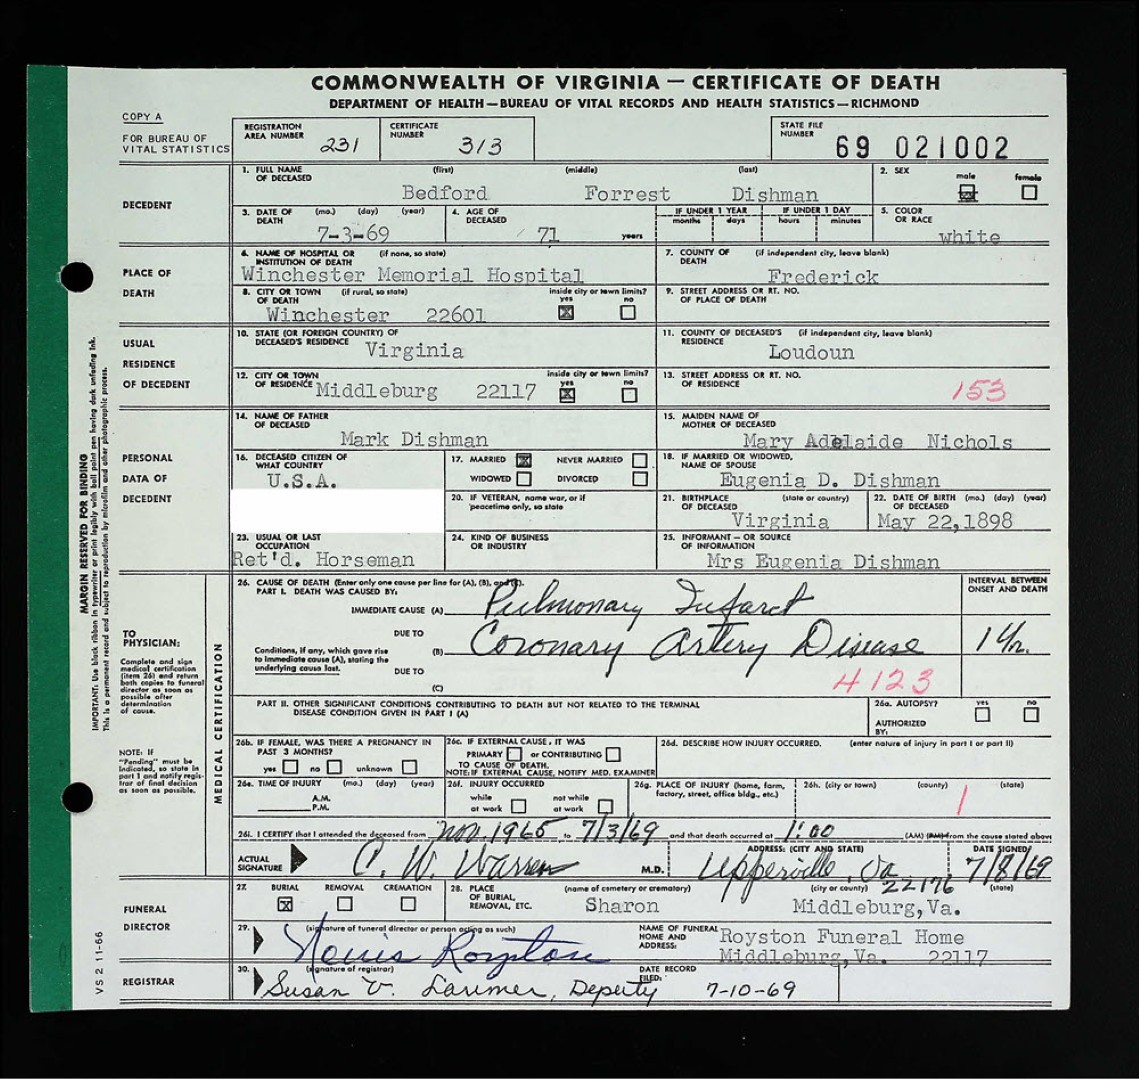 COMMONWEALTH OF VIRGINIA — CERTIFICATE OF DEATH
DEPARTMENT OF HEALTH—BUREAU OF VITAL RECORDS AND HEALTH STATISTICS—RICHMOND
COPY A
FOR BUREAU OF VITAL STATISTICS
REGISTRATION AREA NUMBER 231
CERTIFICATE NUMBER 313
STATE FILE NUMBER 69 021002
DECEDENT
1. FULL NAME OF DECEASED (first) (middle) (last)
Bedford Forrest Dishman
2. SEX male female
3. DATE OF DEATH (mo.) (day) (year)
7-3-69
4. AGE OF DECEASED
71 years
IF UNDER 1 YEAR months days
IF UNDER 1 DAY hours minutes
5. COLOR OR RACE
white
PLACE OF DEATH
6. NAME OF HOSPITAL OR INSTITUTION OF DEATH (if none, so state)
Winchester Memorial Hospital
7. COUNTY OF DEATH (if independent city, leave blank)
Frederick
8. CITY OR TOWN OF DEATH (if rural, so state) inside city or town limits? yes no
Winchester 22601
9. STREET ADDRESS OR RT. NO. OF PLACE OF DEATH
USUAL RESIDENCE OF DECEDENT
10. STATE (OR FOREIGN COUNTRY) OF DECEASED'S RESIDENCE
Virginia
11. COUNTY OF DECEASED'S RESIDENCE (if independent city, leave blank)
Loudoun
12. CITY OR TOWN OF RESIDENCE inside city or town limits? yes no
Middleburg 22117
13. STREET ADDRESS OR RT. NO. OF RESIDENCE
153
PERSONAL DATA OF DECEDENT
14. NAME OF FATHER OF DECEASED
Mark Dishman
15. MAIDEN NAME OF MOTHER OF DECEASED
Mary Adelaide Nichols
16. DECEASED CITIZEN OF WHAT COUNTRY
U.S.A.
17. MARRIED NEVER MARRIED
WIDOWED DIVORCED
18. IF MARRIED OR WIDOWED, NAME OF SPOUSE
Eugenia D. Dishman
20. IF VETERAN, name war, or if peacetime only, so state
21. BIRTHPLACE OF DECEASED (state or country)
Virginia
22. DATE OF BIRTH OF DECEASED (mo.) (day) (year)
May 22,1898
23. USUAL OR LAST OCCUPATION
Ret'd. Horseman
24. KIND OF BUSINESS OR INDUSTRY
25. INFORMANT — OR SOURCE OF INFORMATION
Mrs Eugenia Dishman
TO PHYSICIAN:
Complete and sign medical certification (item 26) and return both copies to funeral director as soon as possible after determination of cause.
NOTE: If "Pending" must be indicated, so state in part 1 and notify registrar of final decision as soon as possible.
MEDICAL CERTIFICATION
26. CAUSE OF DEATH (Enter only one cause per line for (A), (B), and (C).
PART I. DEATH WAS CAUSED BY:
INTERVAL BETWEEN ONSET AND DEATH
IMMEDIATE CAUSE (A) Pulmonary Infarct
DUE TO
Conditions, if any, which gave rise to immediate cause (A), stating the underlying cause last.
(B) Coronary Artery Disease
DUE TO
(C)
4123
PART II. OTHER SIGNIFICANT CONDITIONS CONTRIBUTING TO DEATH BUT NOT RELATED TO THE TERMINAL DISEASE CONDITION GIVEN IN PART I (A)
26a. AUTOPSY? yes no
AUTHORIZED BY:
26b. IF FEMALE, WAS THERE A PREGNANCY IN PAST 3 MONTHS?
yes no unknown
26c. IF EXTERNAL CAUSE, IT WAS
PRIMARY or CONTRIBUTING
TO CAUSE OF DEATH.
NOTE: IF EXTERNAL CAUSE, NOTIFY MED. EXAMINER
26d. DESCRIBE HOW INJURY OCCURRED. (enter nature of injury in part I or part II)
26e. TIME OF INJURY (mo.) (day) (year)
A.M.
P.M.
26f. INJURY OCCURRED
while at work not while at work
26g. PLACE OF INJURY (home, farm, factory, street, office bldg., etc.)
26h. (city or town) (county) (state)
1
26i. I CERTIFY that I attended the deceased from Nov. 1965 to 7/3/69 and that death occurred at 1:00 (AM) from the cause stated above
ACTUAL SIGNATURE C. W. Warren M.D.
ADDRESS: (CITY AND STATE)
Upperville, Va 22176
DATE SIGNED
7/8/69
FUNERAL DIRECTOR
27. BURIAL REMOVAL CREMATION
28. PLACE OF BURIAL, REMOVAL, ETC. (name of cemetery or crematory) (city or county) (state)
Sharon Middleburg,Va.
29. (signature of funeral director or person acting as such)
Royston
NAME OF FUNERAL HOME AND ADDRESS:
Royston Funeral Home
Middleburg,Va. 22117
REGISTRAR
30. (signature of registrar)
Susan V. Larimer, Deputy
DATE RECORD FILED:
7-10-69
MARGIN RESERVED FOR BINDING
IMPORTANT: Use black ribbon in typewriter or print legibly with ball point pen having dark unfading ink.
This is a permanent record and subject to reproduction by microfilm and other photographic process.
VS 2 11-66